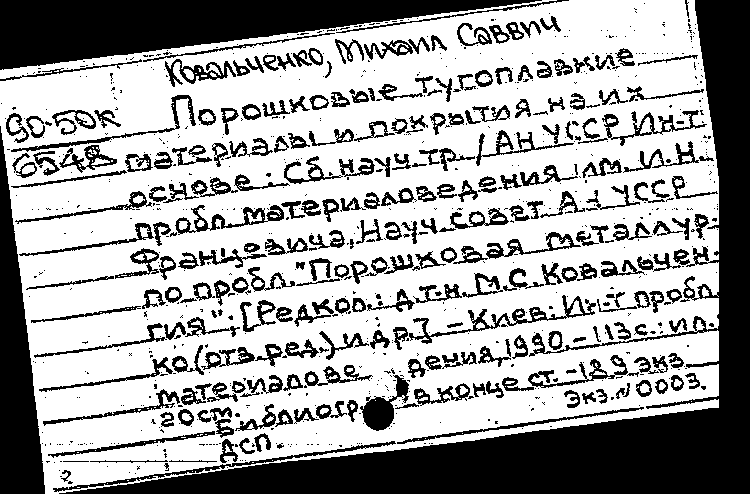 Ковальченко, Михаил Саввич
90-50К
6548
Порошковые тугоплавкие
материалы и покрытия на их
основе: Сб. науч. тр. / АН УССР, Ин-т
пробл. материаловедения им. И.Н.
Францевича, Науч. совет АН УССР
по пробл. "Порошковая металлур-
гия"; [Редкол.: д.т.н. М.С. Ковальчен-
ко (отв. ред.) и др.]. - Киев: Ин-т пробл.
материалове дения, 1990. - 113 с.: ил.
20 см.
Библиогр. в конце ст. - 189 экз.
ДСП.
Экз. N 0003.
2